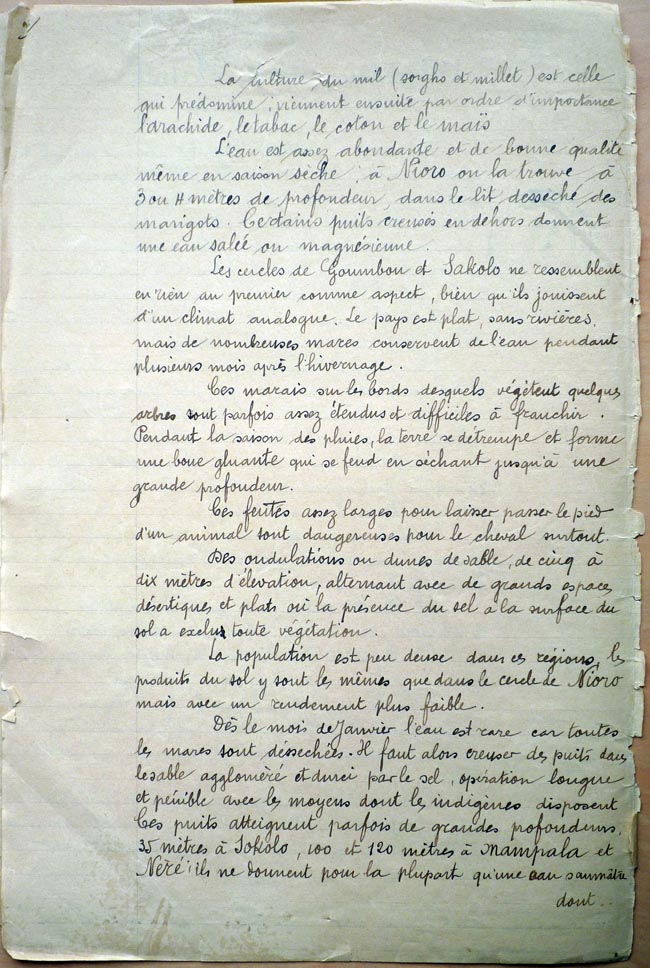 La culture du mil (sorgho et millet) est celle
qui prédomine ; viennent ensuite par ordre d'importance
l'arachide, le tabac, le coton et le maïs
L'eau est assez abondante et de bonne qualité
même en saison sèche ; à Nioro on la trouve à
3 ou 4 mètres de profondeur, dans le lit desséché des
marigots. Certains puits creusés en dehors donnent
une eau salée ou magnésienne.
Les cercles de Goumbou et Sokolo ne ressemblent
en rien au premier comme aspect, bien qu'ils jouissent
d'un climat analogue. Le pays est plat, sans rivières,
mais de nombreuses mares conservent de l'eau pendant
plusieurs mois après l'hivernage.
Ces marais sur les bords desquels végètent quelques
arbres sont parfois assez étendus et difficiles à franchir.
Pendant la saison des pluies, la terre se détrempe et forme
une boue gluante qui se fend en séchant jusqu'à une
grande profondeur.
Ces fentes assez larges pour laisser passer le pied
d'un animal sont dangereuses pour le cheval surtout.
Des ondulations ou dunes de sable, de cinq à
dix mètres d'élévation, alternant avec de grands espaces
désertiques et plats où la présence du sel à la surface du
sol a exclus toute végétation.
La population est peu dense dans ces régions, les
produits du sol y sont les mêmes que dans le cercle de Nioro
mais avec un rendement plus faible.
Dès le mois de Janvier l'eau est rare car toutes
les mares sont désséchées. Il faut alors creuser des puits dans
le sable aggloméré et durci par le sel, opération longue
et pénible avec les moyens dont les indigènes disposent
Ces puits atteignent parfois de grandes profondeurs,
35 mètres à Sokolo, 100 et 120 mètres à Mampala et
Néré ; ils ne donnent pour la plupart qu'une eau saumâtre
dont..